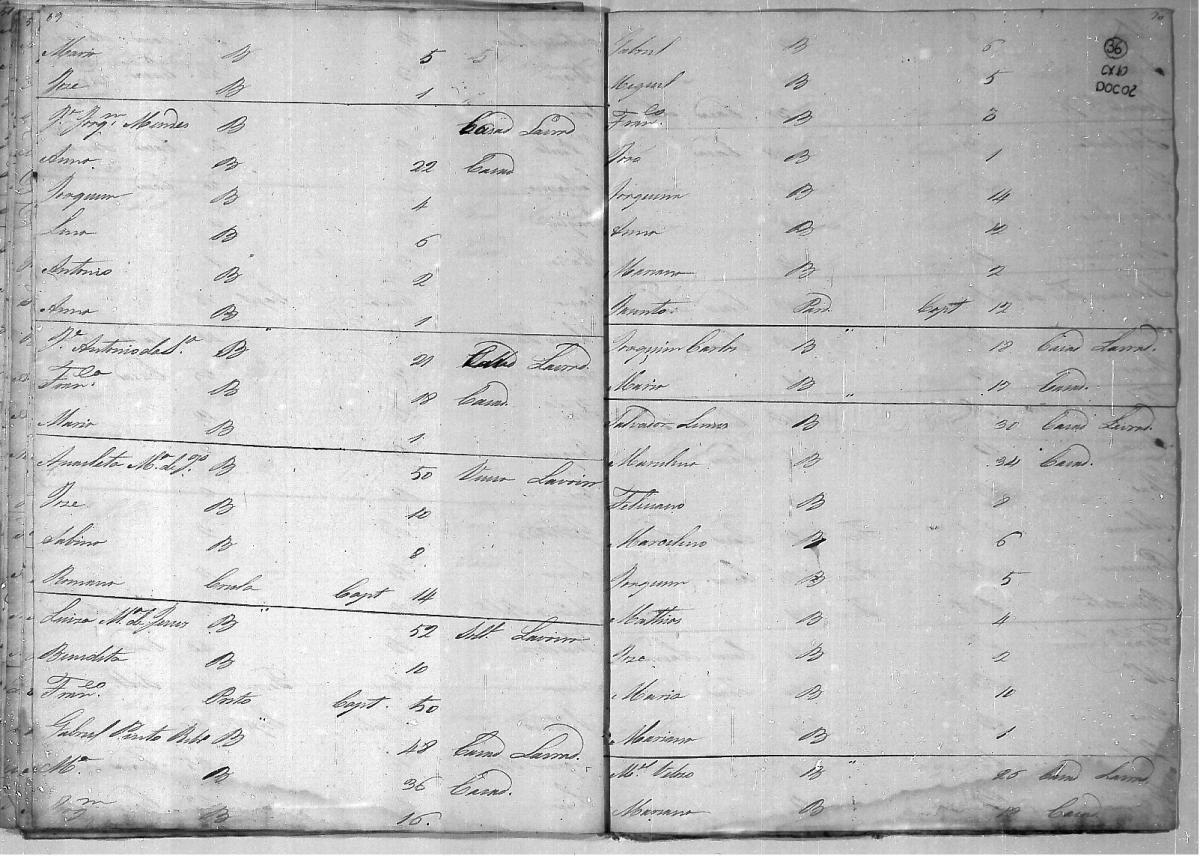 69
Maria B 5 5
Jose B 1
Je. Joaqm. Mendes B Casad Lavrad
Anna B 22 Casad
Joaquim B 4
Lina B 6
Antonio B 2
Anna B 1
Je. Antonio da Sa. B 21 Lavrad.
Franco. B 18 Casad.
Maria B 1
Anacleta Ma. de B 50 Viuva Lavoira
Jose B 10
Sabino B 8
Romana Criola Capt 14
Luiza Ma. de Jesus B 52 Solt Lavoira
Benedita B 10
Franco. Preto Capt. 50
Gabriel Pinto Ribo B 48 Casad Lavrad.
Ma. B 36 Casad.
B 16.
70
36
CX10
DOC02
Gabriel B 6
Miguel B 5
Franco. B 3
B 1
Joaquim B 14
Anna B 12
Mariana B 2
Pard. Capt 12
Joaquim Carlos B 18 Casad Lavrad.
Maria B 17 Casad.
Salvador Lemes B 30 Casad Lavrad.
Marcelina B 34 Casad.
Felisiano B 8
Marcelino B 6
Joaquim B 5
Mathias B 4
Joze B 2
Maria B 10
Mariano B 1
Ml. Velozo B 25 Casad Lavrad
Mariana B 18 Casad